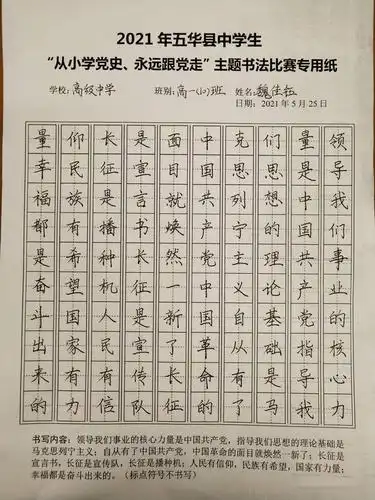 2021 年五华县中学生
“从小学党史、永远跟党走”主题书法比赛专用纸
学校：高级中学 班别：高一(10)班 姓名：
日期：2021 年 5 月 25 日
领导我们事业的核心力
量是中国共产党指导我
们思想的理论基础是马
克思列宁主义自从有了
中国共产党中国革命的
面目就焕然一新了长征
是宣言书长征是宣传队
长征是播种机人民有信
仰民族有希望国家有力
量幸福都是奋斗出来的
书写内容：领导我们事业的核心力量是中国共产党，指导我们思想的理论基础是
马克思列宁主义；自从有了中国共产党，中国革命的面目就焕然一新了；长征是
宣言书，长征是宣传队，长征是播种机；人民有信仰，民族有希望，国家有力量；
幸福都是奋斗出来的。（标点符号不书写）